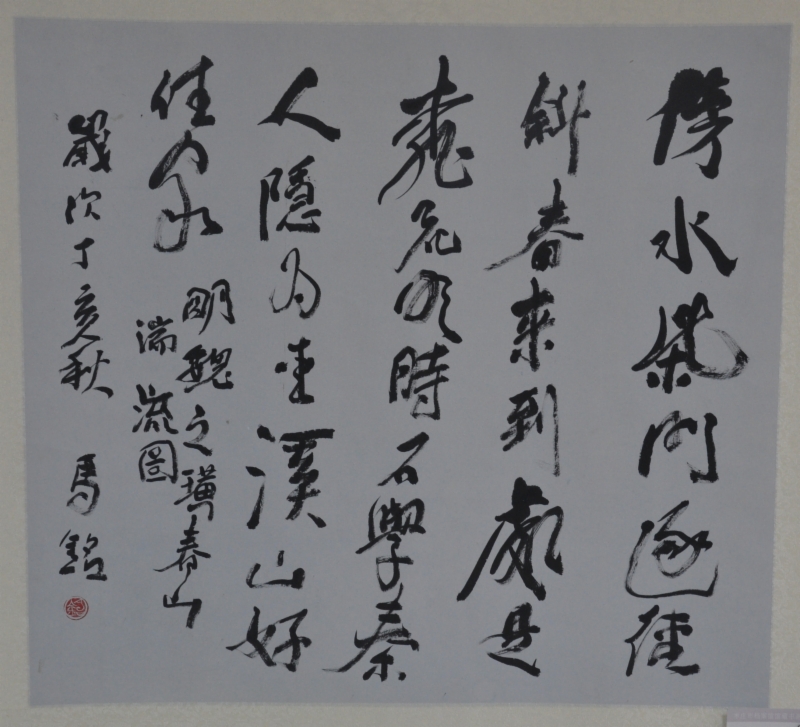 傍水柴門逐徑
斜春來到處是
桃花時不學秦
人隱為溪山好
住家 明魏之璜春山
湍流圖
歲次丁亥秋 馬銘